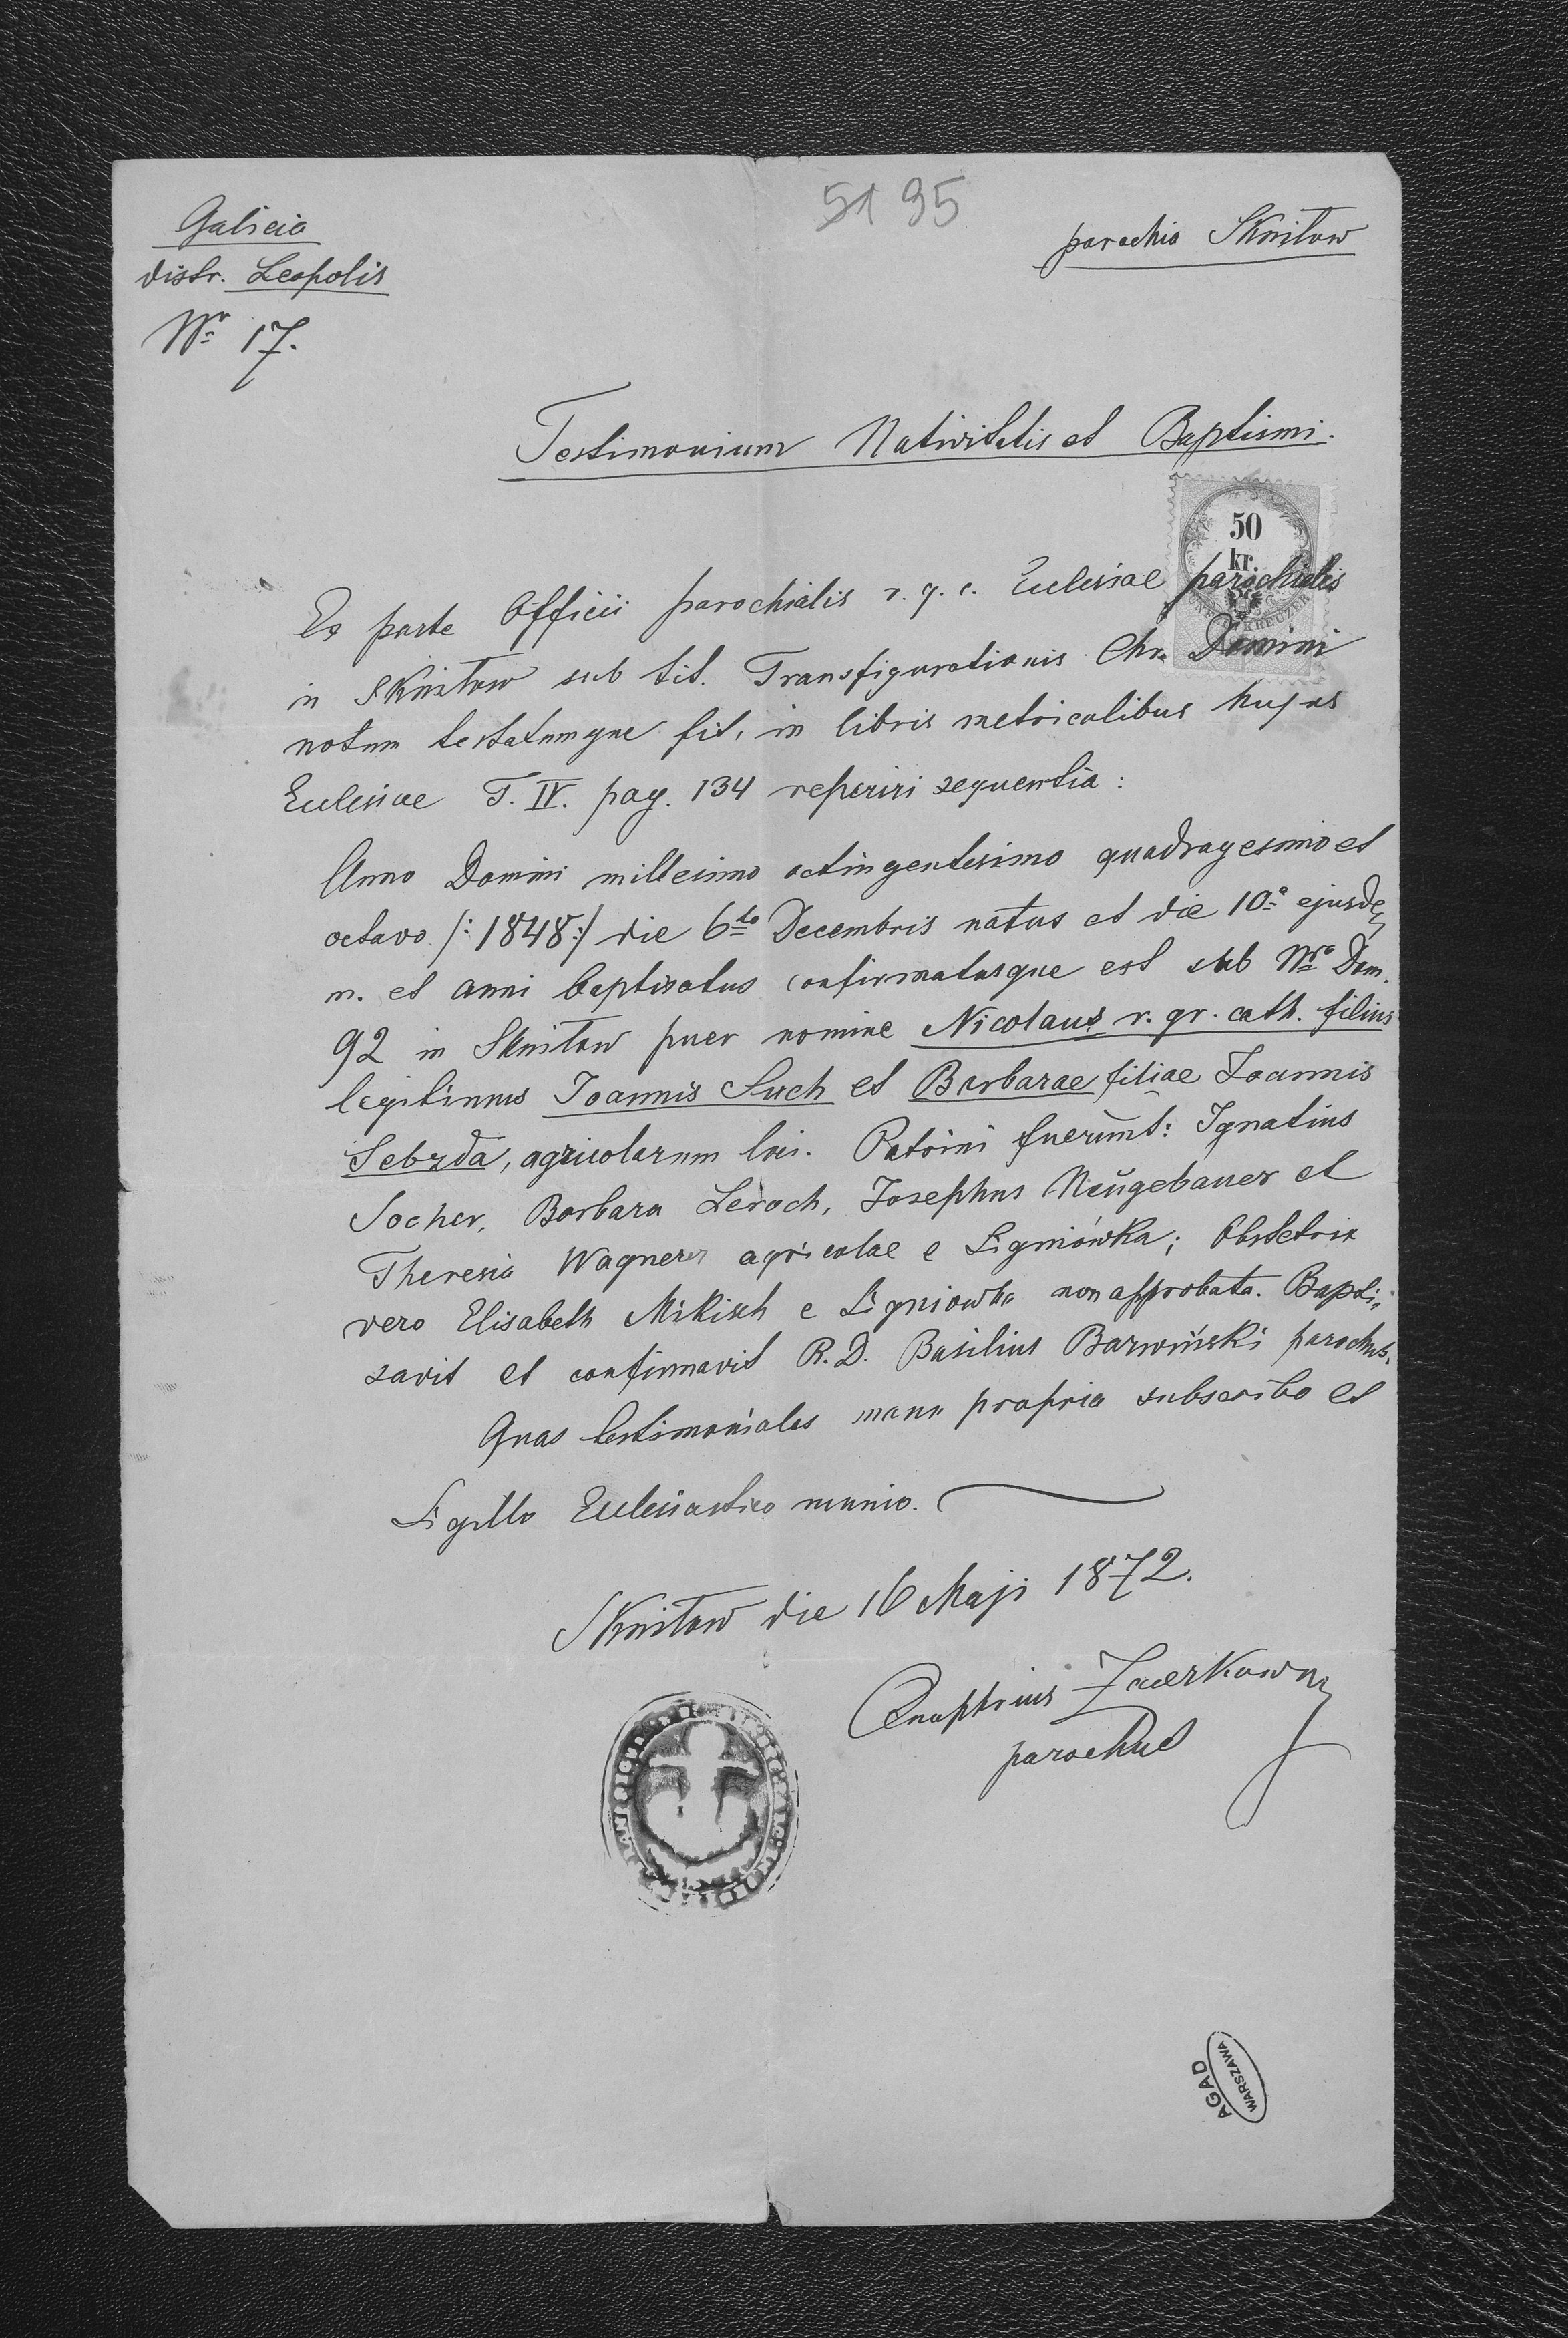 5195
Galicia
distr. Leopolis
Nr 17.
parochia Sknitow
Testimonium Nativitatis et Baptismi.
50
kr.
KREUZER
Ex parte Officii parochialis r. g. c. Ecclesiae parochialis
in Sknitow sub tit. Transfigurationis Chr. Domini
notum testatumque fit, in libris metricalibus hujus
Ecclesiae T. IV. pag. 134 reperiri sequentia:
Anno Domini millesimo octingentesimo quadragesimo et
octavo /: 1848 :/ die 6to Decembris natus et die 10a ejusdem
m. et anni baptisatus confirmatusque est sub Nro Dom.
92 in Sknitow puer nomine Nicolaus r. gr. cath. filius
legitimus Joannis Such et Barbarae filiae Joannis
Sebzda, agricolarum loci. Patrini fuerunt: Ignatius
Socher, Barbara Leroch, Josephus Neugebauer et
Theresia Wagner agricolae e Signiówka; Obstetrix
vero Elisabeth Mikisch e Signiowka non approbata. Bapti-
savit et confirmavit R. D. Basilius Barwiński parochus.
Quas testimoniales manu propria subscribo et
Sigillo Ecclesiastico munio.
Sknitow die 16 Maji 1872.
Onuphrius
parochus
AGAD
WARSZAWA